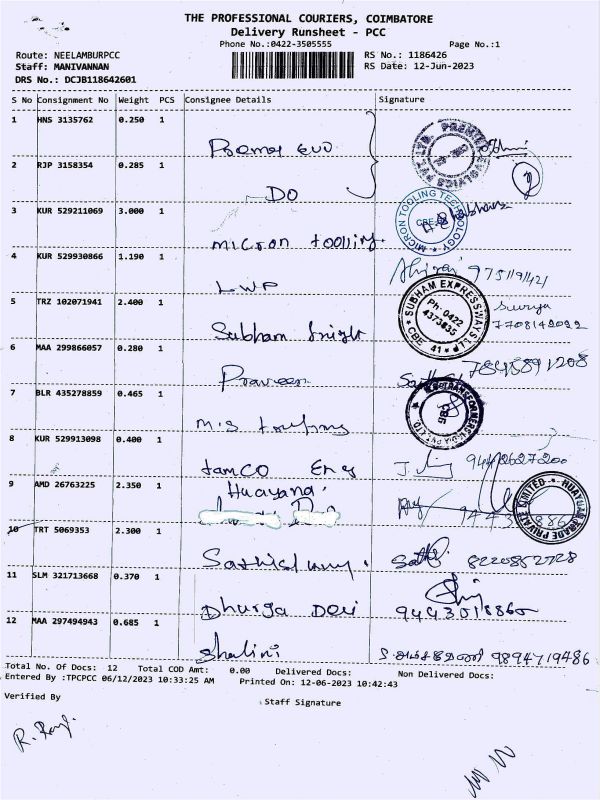 THE PROFESSIONAL COURIERS, COIMBATORE
Delivery Runsheet - PCC
Phone No.:0422-3505555 Page No.:1
Route: NEELAMBURPCC RS No.: 1186426
Staff: MANIVANNAN RS Date: 12-Jun-2023
DRS No.: DCJB118642601
S No Consignment No Weight PCS Consignee Details Signature
1 HNS 3135762 0.250 1
2 RJP 3158354 0.285 1 DO
3 KUR 529211069 3.000 1 micron
MICRON TOOLING TECHNOLOGY
4 KUR 529930866 1.190 1 LWP
5 TRZ 102071941 2.400 1 Subham
SUBHAM EXPRESSWAYS LLP Ph: 0422 4373635 CBE 41
Surya
7708142022
6 MAA 299866057 0.280 1 Praveen
7 BLR 435278859 0.465 1 M.S
8 KUR 529913098 0.400 1 tamco
9 AMD 26763225 2.350 1 Huayana
10 TRT 5069353 2.300 1 8220852728
11 SLM 321713668 0.370 1 Dhurga Devi 9443018860
12 MAA 297494943 0.685 1 Shalini 9894719486
Total No. Of Docs: 12 Total COD Amt: 0.00 Delivered Docs: Non Delivered Docs:
Entered By :TPCPCC 06/12/2023 10:33:25 AM Printed On: 12-06-2023 10:42:43
Verified By Staff Signature